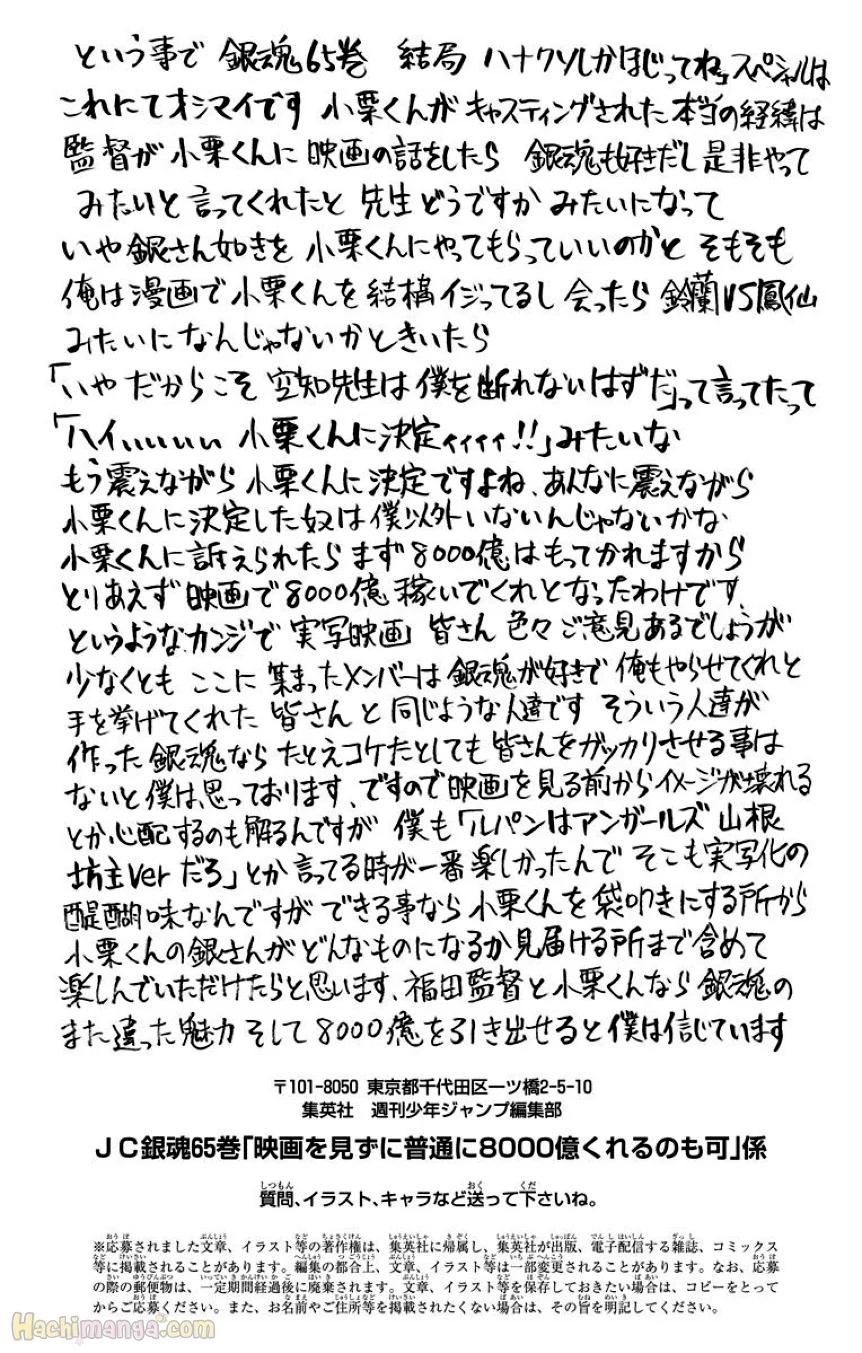 という事で 銀魂65巻 結局 ハナクソしかほじってねースペシャルは
これにてオシマイです 小栗くんが キャスティングされた本当の経緯は
監督が 小栗くんに 映画の話をしたら 銀魂も好きだし 是非やって
みたいと 言ってくれたと 先生どうですか みたいになって
いや銀さん如きを 小栗くんにやってもらっていいのかと そもそも
俺は漫画で 小栗くんを 結構イジってるし 会ったら 鈴蘭VS鳳仙
みたいになんじゃないかときいたら
「いや だからこそ 空知先生は 僕を断れないはずだ」って言ってたって
「ハイいいいい 小栗くんに決定ィィィィ!!」みたいな
もう震えながら 小栗くんに決定ですよね、あんなに震えながら
小栗くんに決定した奴は僕以外いないんじゃないかな
小栗くんに訴えられたら まず8000億はもってかれますから
とりあえず 映画で8000億 稼いでくれとなったわけです、
というようなカンジで 実写映画 皆さん 色々ご意見あるでしょうが
少なくとも ここに 集まったメンバーは 銀魂が好きで 俺もやらせてくれと
手を挙げてくれた 皆さんと 同じような人達です そういう人達が
作った 銀魂なら たとえコケたとしても皆さんをガッカリさせる事は
ないと僕は思っております、ですので映画を見る前からイメージが壊れる
とか心配するのも解るんですが 僕も「ルパンはアンガールズ 山根
坊主Verだろ」とか言ってる時が一番楽しかったんで そこも実写化の
醍醐味なんですが できる事なら 小栗くんを袋叩きにする所から
小栗くんの銀さんが どんなものになるか見届ける所まで含めて
楽しんでいただけたらと思います、福田監督と小栗くんなら 銀魂の
また違った魅力 そして8000億を引き出せると僕は信じています
〒101-8050 東京都千代田区一ツ橋2-5-10
集英社 週刊少年ジャンプ編集部
JC銀魂65巻「映画を見ずに普通に8000億くれるのも可」係
質問、イラスト、キャラなど送って下さいね。
※応募されました文章、イラスト等の著作権は、集英社に帰属し、集英社が出版、電子配信する雑誌、コミックス
等に掲載されることがあります。編集の都合上、文章、イラスト等は一部変更されることがあります。なお、応募
の際の郵便物は、一定期間経過後に廃棄されます。文章、イラスト等を保存しておきたい場合は、コピーをとって
からご応募ください。また、お名前やご住所等を掲載されたくない場合は、その旨を明記してください。
Hachimanga.com